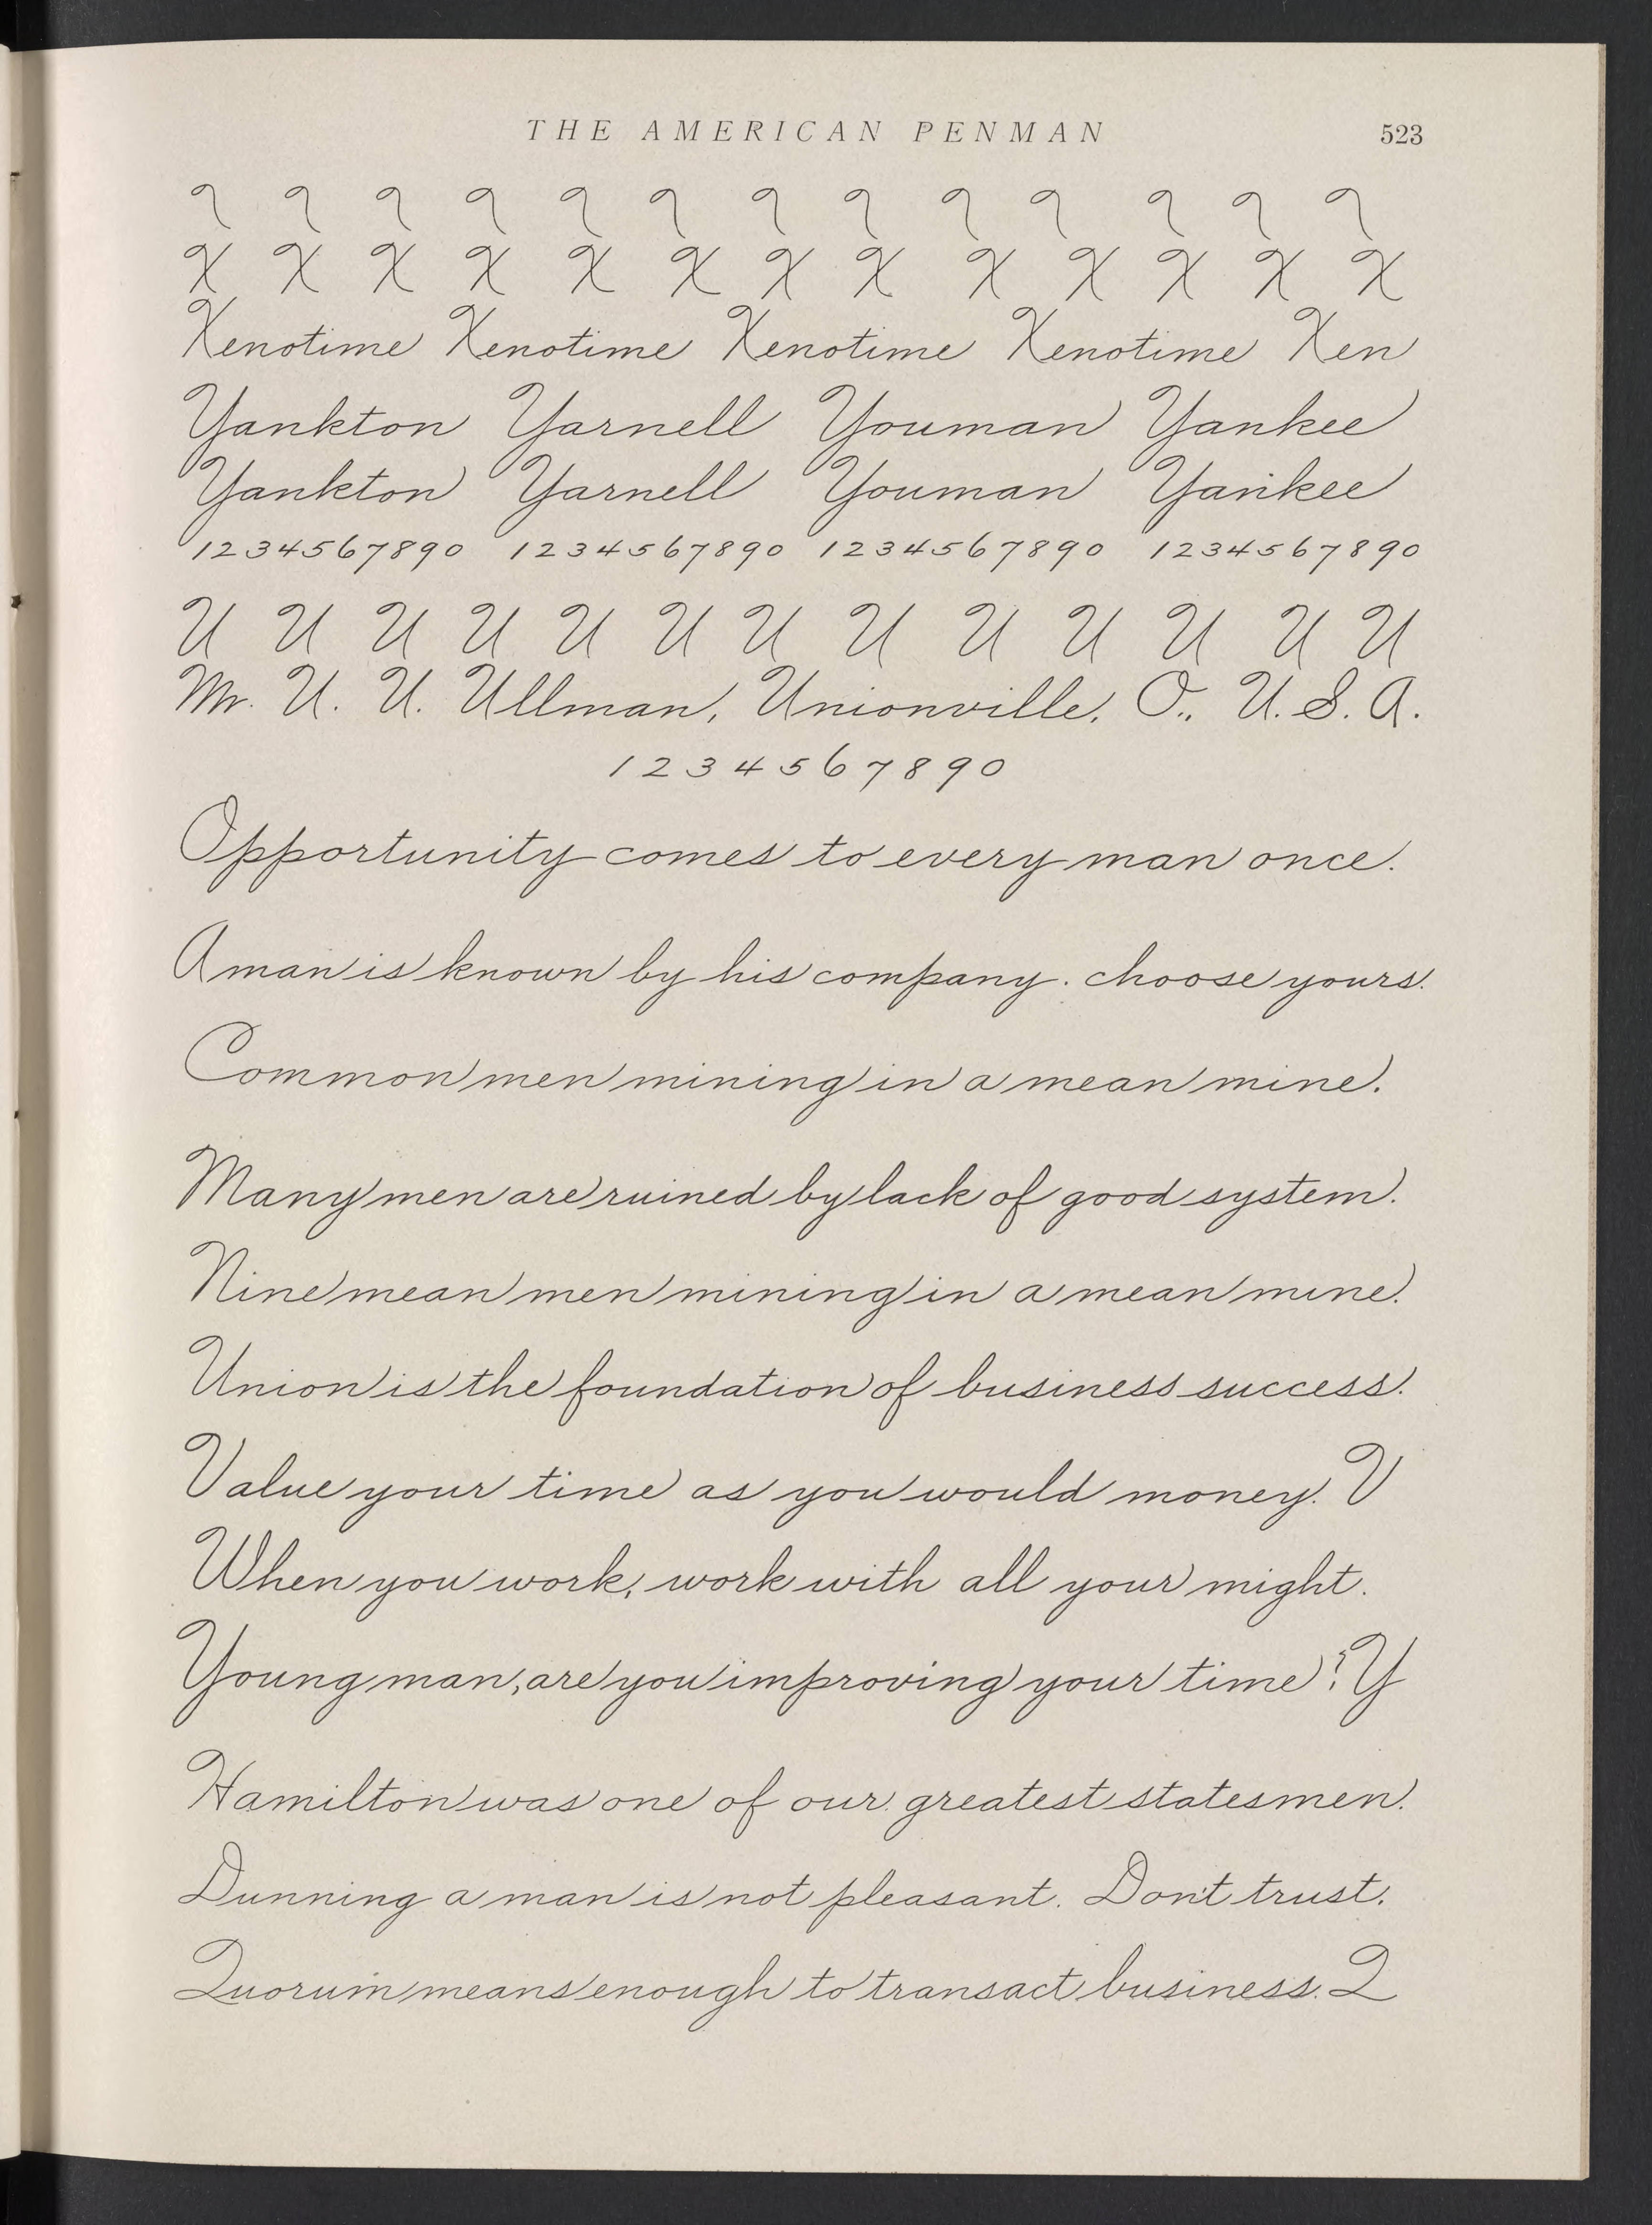 THE AMERICAN PENMAN 523
X X X X X X X X X X X X X
Xenotime Xenotime Xenotime Xenotime Xen
Yankton Yarnell Youman Yankee
Yankton Yarnell Youman Yankee
1234567890 1234567890 1234567890 1234567890
U U U U U U U U U U U U U
Mr. U. U. Ullman, Unionville, O., U. S. A.
1234567890
Opportunity comes to every man once.
A man is known by his company. choose yours.
Common men mining in a mean mine.
Many men are ruined by lack of good system.
Nine mean men mining in a mean mine.
Union is the foundation of business success.
Value your time as you would money. V
When you work, work with all your might.
Young man, are you improving your time? Y
Hamilton was one of our greatest statesmen.
Dunning a man is not pleasant. Don't trust.
Quorum means enough to transact business. Q